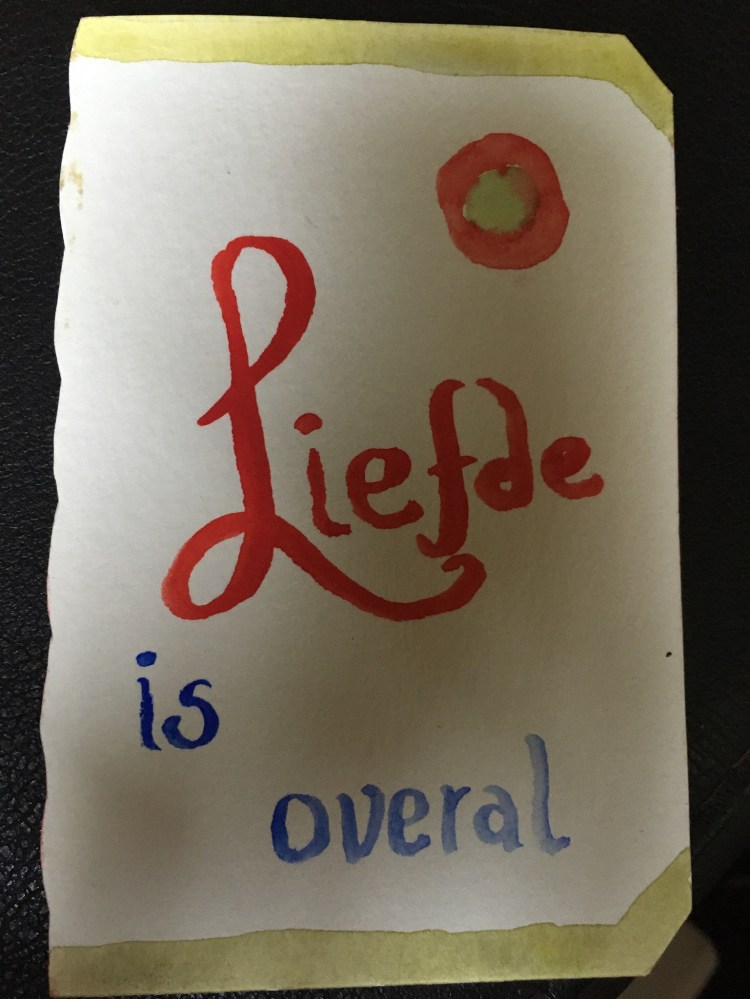 Liefde
is
overal